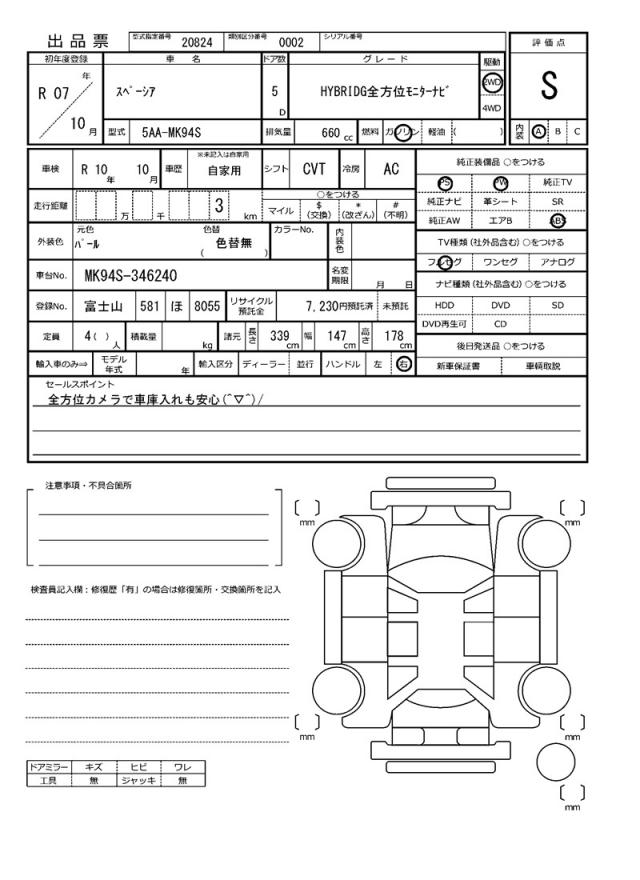 出品票
型式指定番号 20824 類別区分番号 0002 シリアル番号
評価点
S
初年度登録 車名 ドア数 グレード 駆動
R 07 年 10 月
ｽﾍﾟｰｼｱ
5 D
HYBRIDG全方位ﾓﾆﾀｰﾅﾋﾞ
2WD
4WD
型式 5AA-MK94S 排気量 660 cc 燃料 ガソリン 軽油 ( )
内装 A B C
車検 R 10 年 10 月 車歴 ※未記入は自家用 自家用 シフト CVT 冷房 AC
純正装備品 ○をつける
PS PW 純正TV
純正ナビ 革シート SR
純正AW エアB ABS
走行距離 万 千 3 km
○をつける
マイル $(交換) *(改ざん) #(不明)
TV種類(社外品含む) ○をつける
フルセグ ワンセグ アナログ
外装色 元色 ﾊﾟｰﾙ 色替 色替無 ( ) カラーNo. 内装色
車台No. MK94S-346240 名変期限 月 日
ナビ種類(社外品含む) ○をつける
HDD DVD SD
DVD再生可 CD
登録No. 富士山 581 ほ 8055 リサイクル預託金 7,230円預託済 未預託
定員 4( )人 積載量 kg 諸元 長さ 339 cm 幅 147 cm 高さ 178 cm
後日発送品 ○をつける
新車保証書 車輌取説
輸入車のみ⇒ モデル年式 年 輸入区分 ディーラー 並行 ハンドル 左 右
セールスポイント
全方位カメラで車庫入れも安心(^▽^)/
注意事項・不具合箇所
mm
mm
検査員記入欄：修復歴「有」の場合は修復箇所・交換箇所を記入
mm
mm
ドアミラー キズ ヒビ ワレ
工具 無 ジャッキ 無
mm